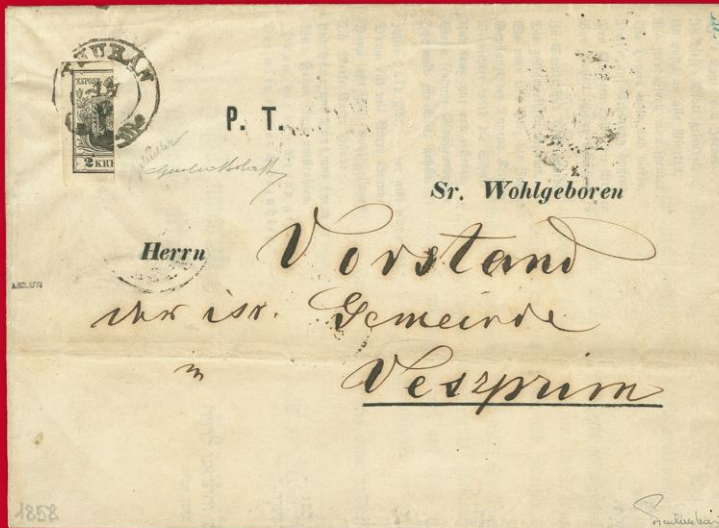 P. T.
2 KRE
Sr. Wohlgeboren
Herrn Vorstand
der isr. Gemeinde
in Veszprim
1858